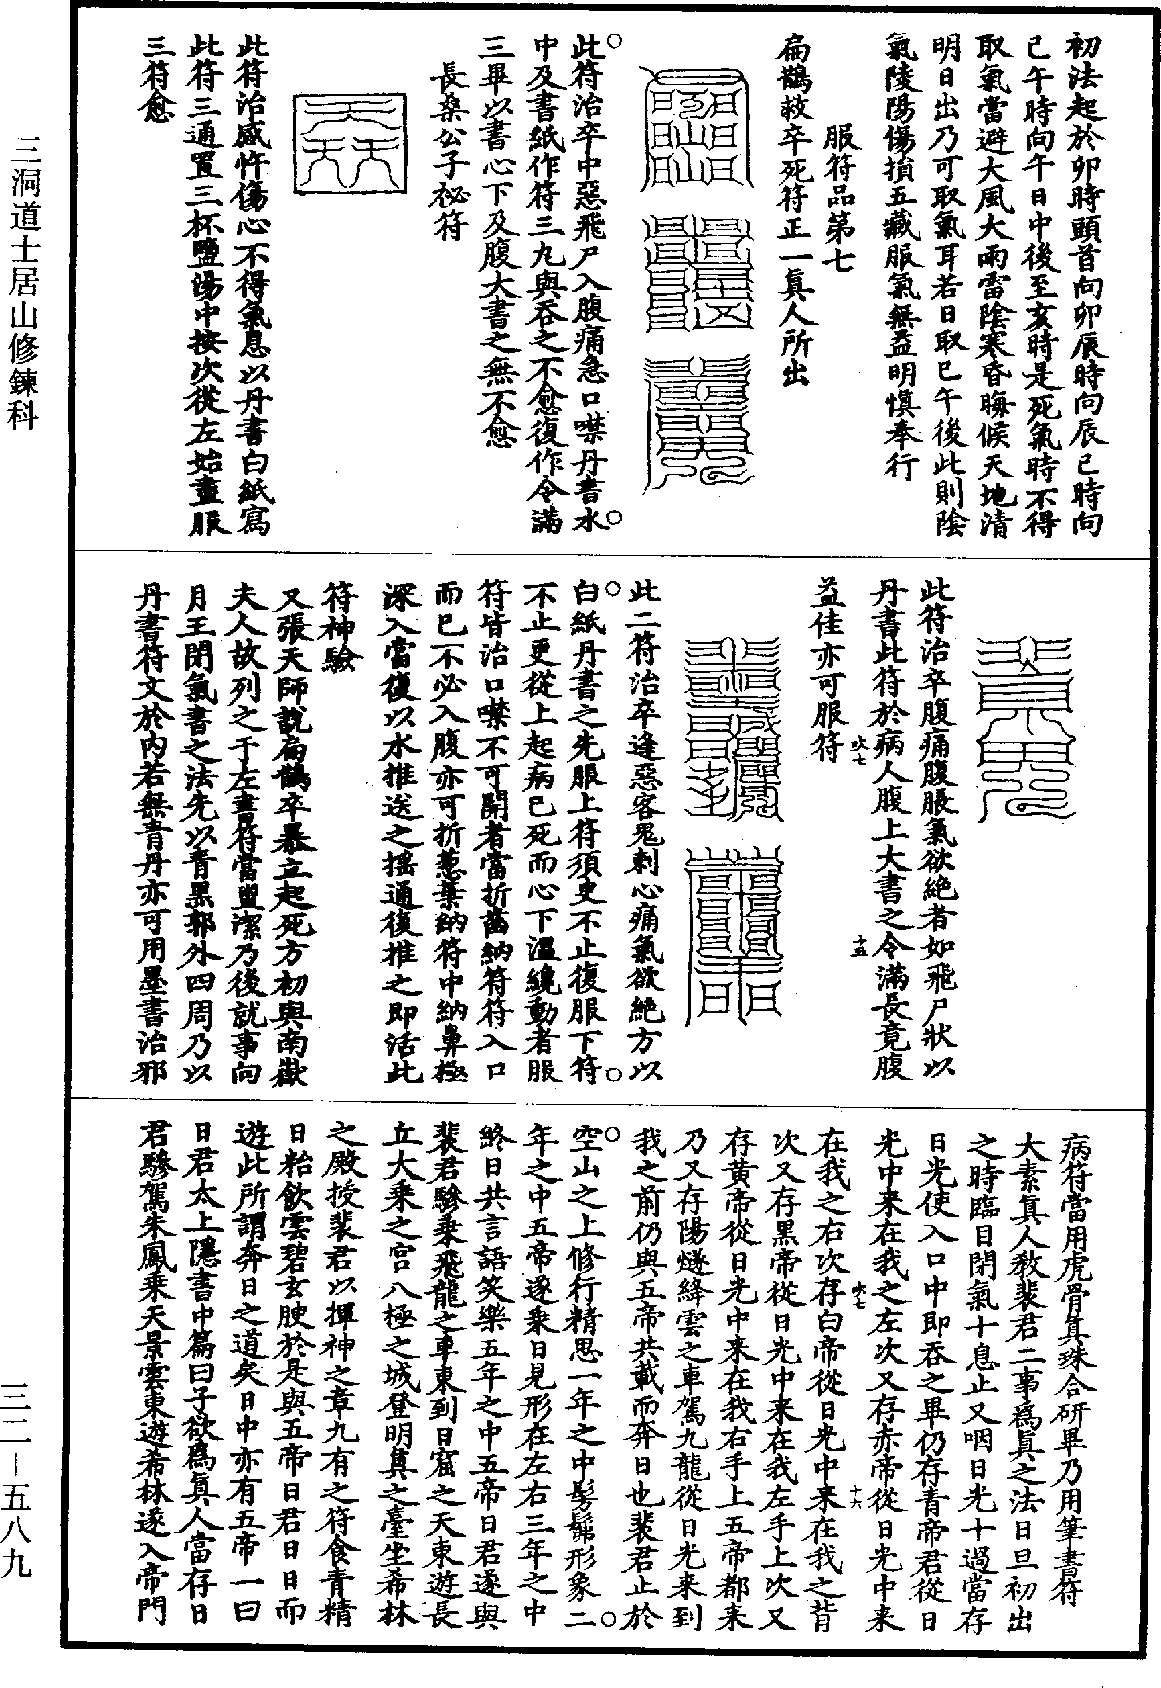 初法起於卯時頭首向卯辰時向辰巳時向
巳午時向午日中後至亥時是死氣時不得
取氣當避大風大雨雷陰寒昏晦候天地清
明日出乃可取氣耳若日取巳午後此則陰
氣陵陽傷損五藏服氣無益明慎奉行
服符品第七
扁鵲救卒死符正一真人所出
此符治卒中惡飛尸入腹痛急口噤丹書水
中及書紙作符三九與吞之不愈復作令滿
三畢以書心下及腹大書之無不愈
長桑公子祕符
此符治感忤傷心不得氣息以丹書白紙寫
此符三通置三杯鹽湯中按次從左始盡服
三符愈
此符治卒腹痛腹脹氣欲絕者如飛尸狀以
丹書此符於病人腹上大書之令滿長竟腹
益佳亦可服符
此二符治卒逢惡客鬼刺心痛氣欲絕方以
白紙丹書之先服上符須臾不止復服下符
不止更從上起病已死而心下溫纔動者服
符皆治口噤不可開者當折齒納符符入口
而已不必入腹亦可折葱葉納符中納鼻極
深入當復以水推送之搖通復推之即活此
符神驗
又張天師說扁鵲卒暴立起死方初與南嶽
夫人故列之于左書符當豊潔乃後就事向
月王閉氣書之法先以青黑郭外四周乃以
丹書符文於內若無青丹亦可用墨書治邪
病符當用虎骨真珠合研畢乃用筆書符
大素真人教裴君二事為真之法日旦初出
之時臨目閉氣十息止又咽日光十過當存
日光使入口中即吞之畢仍存青帝君從日
光中来在我之左次又存赤帝從日光中来
在我之右次存白帝從日光中来在我之背
次又存黑帝從日光中来在我左手上次又
存黃帝從日光中来在我右手上五帝都来
乃又存陽燧絳雲之車駕九龍從日光来到
我之前仍與五帝共載而奔日也裴君止於
空山之上修行精思一年之中髣髴形象二
年之中五帝遂乘日見形在左右三年之中
終日共言語笑樂五年之中五帝日君遂與
裴君驂乘飛龍之車東到日窟之天東遊長
丘大乘之宮八極之城登明真之臺坐希林
之殿授裴君以揮神之章九有之符食青精
日粭飲雲碧玄腴於是與五帝日君日日而
遊此所謂奔日之道矣日中亦有五帝一曰
日君太上隱書中篇曰子欲為真人當存日
君驂駕朱鳳乘天景雲東遊希林遂入帝門
三洞道士居山修鍊科
三二－五八九